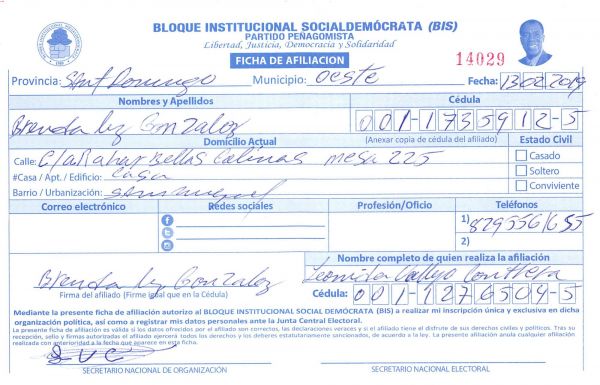 BLOQUE INSTITUCIONAL SOCIALDEMÓCRATA (BIS)
PARTIDO PEÑAGOMISTA
Libertad, Justicia, Democracia y Solidaridad
FICHA DE AFILIACION
14029
Provincia: Municipio: Oeste Fecha: 13/02/2019
Nombres y Apellidos Cédula
Brenda luz Gonzalez 001-1735912-5
Domicilio Actual (Anexar copia de cédula del afiliado) Estado Civil
Calle: Bellas Colinas 225 Casado
#Casa / Apt. / Edificio: Casa Soltero
Barrio / Urbanización: Conviviente
Correo electrónico Redes sociales Profesión/Oficio Teléfonos
1) 829556
2)
Nombre completo de quien realiza la afiliación
Brenda luz Gonzalez Leonida Vallejo Contrera
Firma del afiliado (Firme igual que en la Cédula) Cédula: 001-1276504-5
Mediante la presente ficha de afiliación autorizo al BLOQUE INSTITUCIONAL SOCIAL DEMÓCRATA (BIS) a realizar mi inscripción única y exclusiva en dicha
organización política, así como a registrar mis datos personales ante la Junta Central Electoral.
La presente ficha de afiliación es válida si los datos ofrecidos por el afiliado son correctos, las declaraciones veraces y si el afiliado tiene el disfrute de sus derechos civiles y políticos. Tras su
recepción, sello y firmas autorizadas el afiliado ejercerá todos los derechos y los deberes estatutariamente sancionados, de acuerdo a la ley. La presente afiliación anula cualquier afiliación
realizada con anterioridad a la fecha que aparece en esta ficha.
SECRETARIO NACIONAL DE ORGANIZACIÓN SECRETARIO NACIONAL ELECTORAL